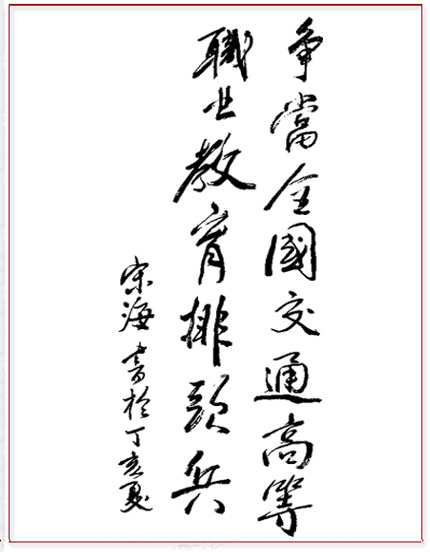 争當全國交通高等
職业教育排頭兵
宗海書於丁亥夏